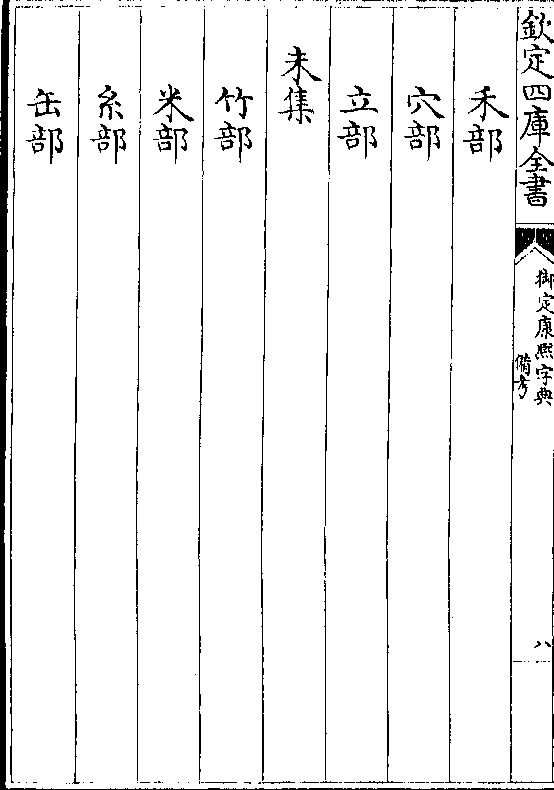 欽定四庫全書
御定康熙字典
備考
八
禾部
穴部
立部
未集
竹部
米部
糸部
缶部